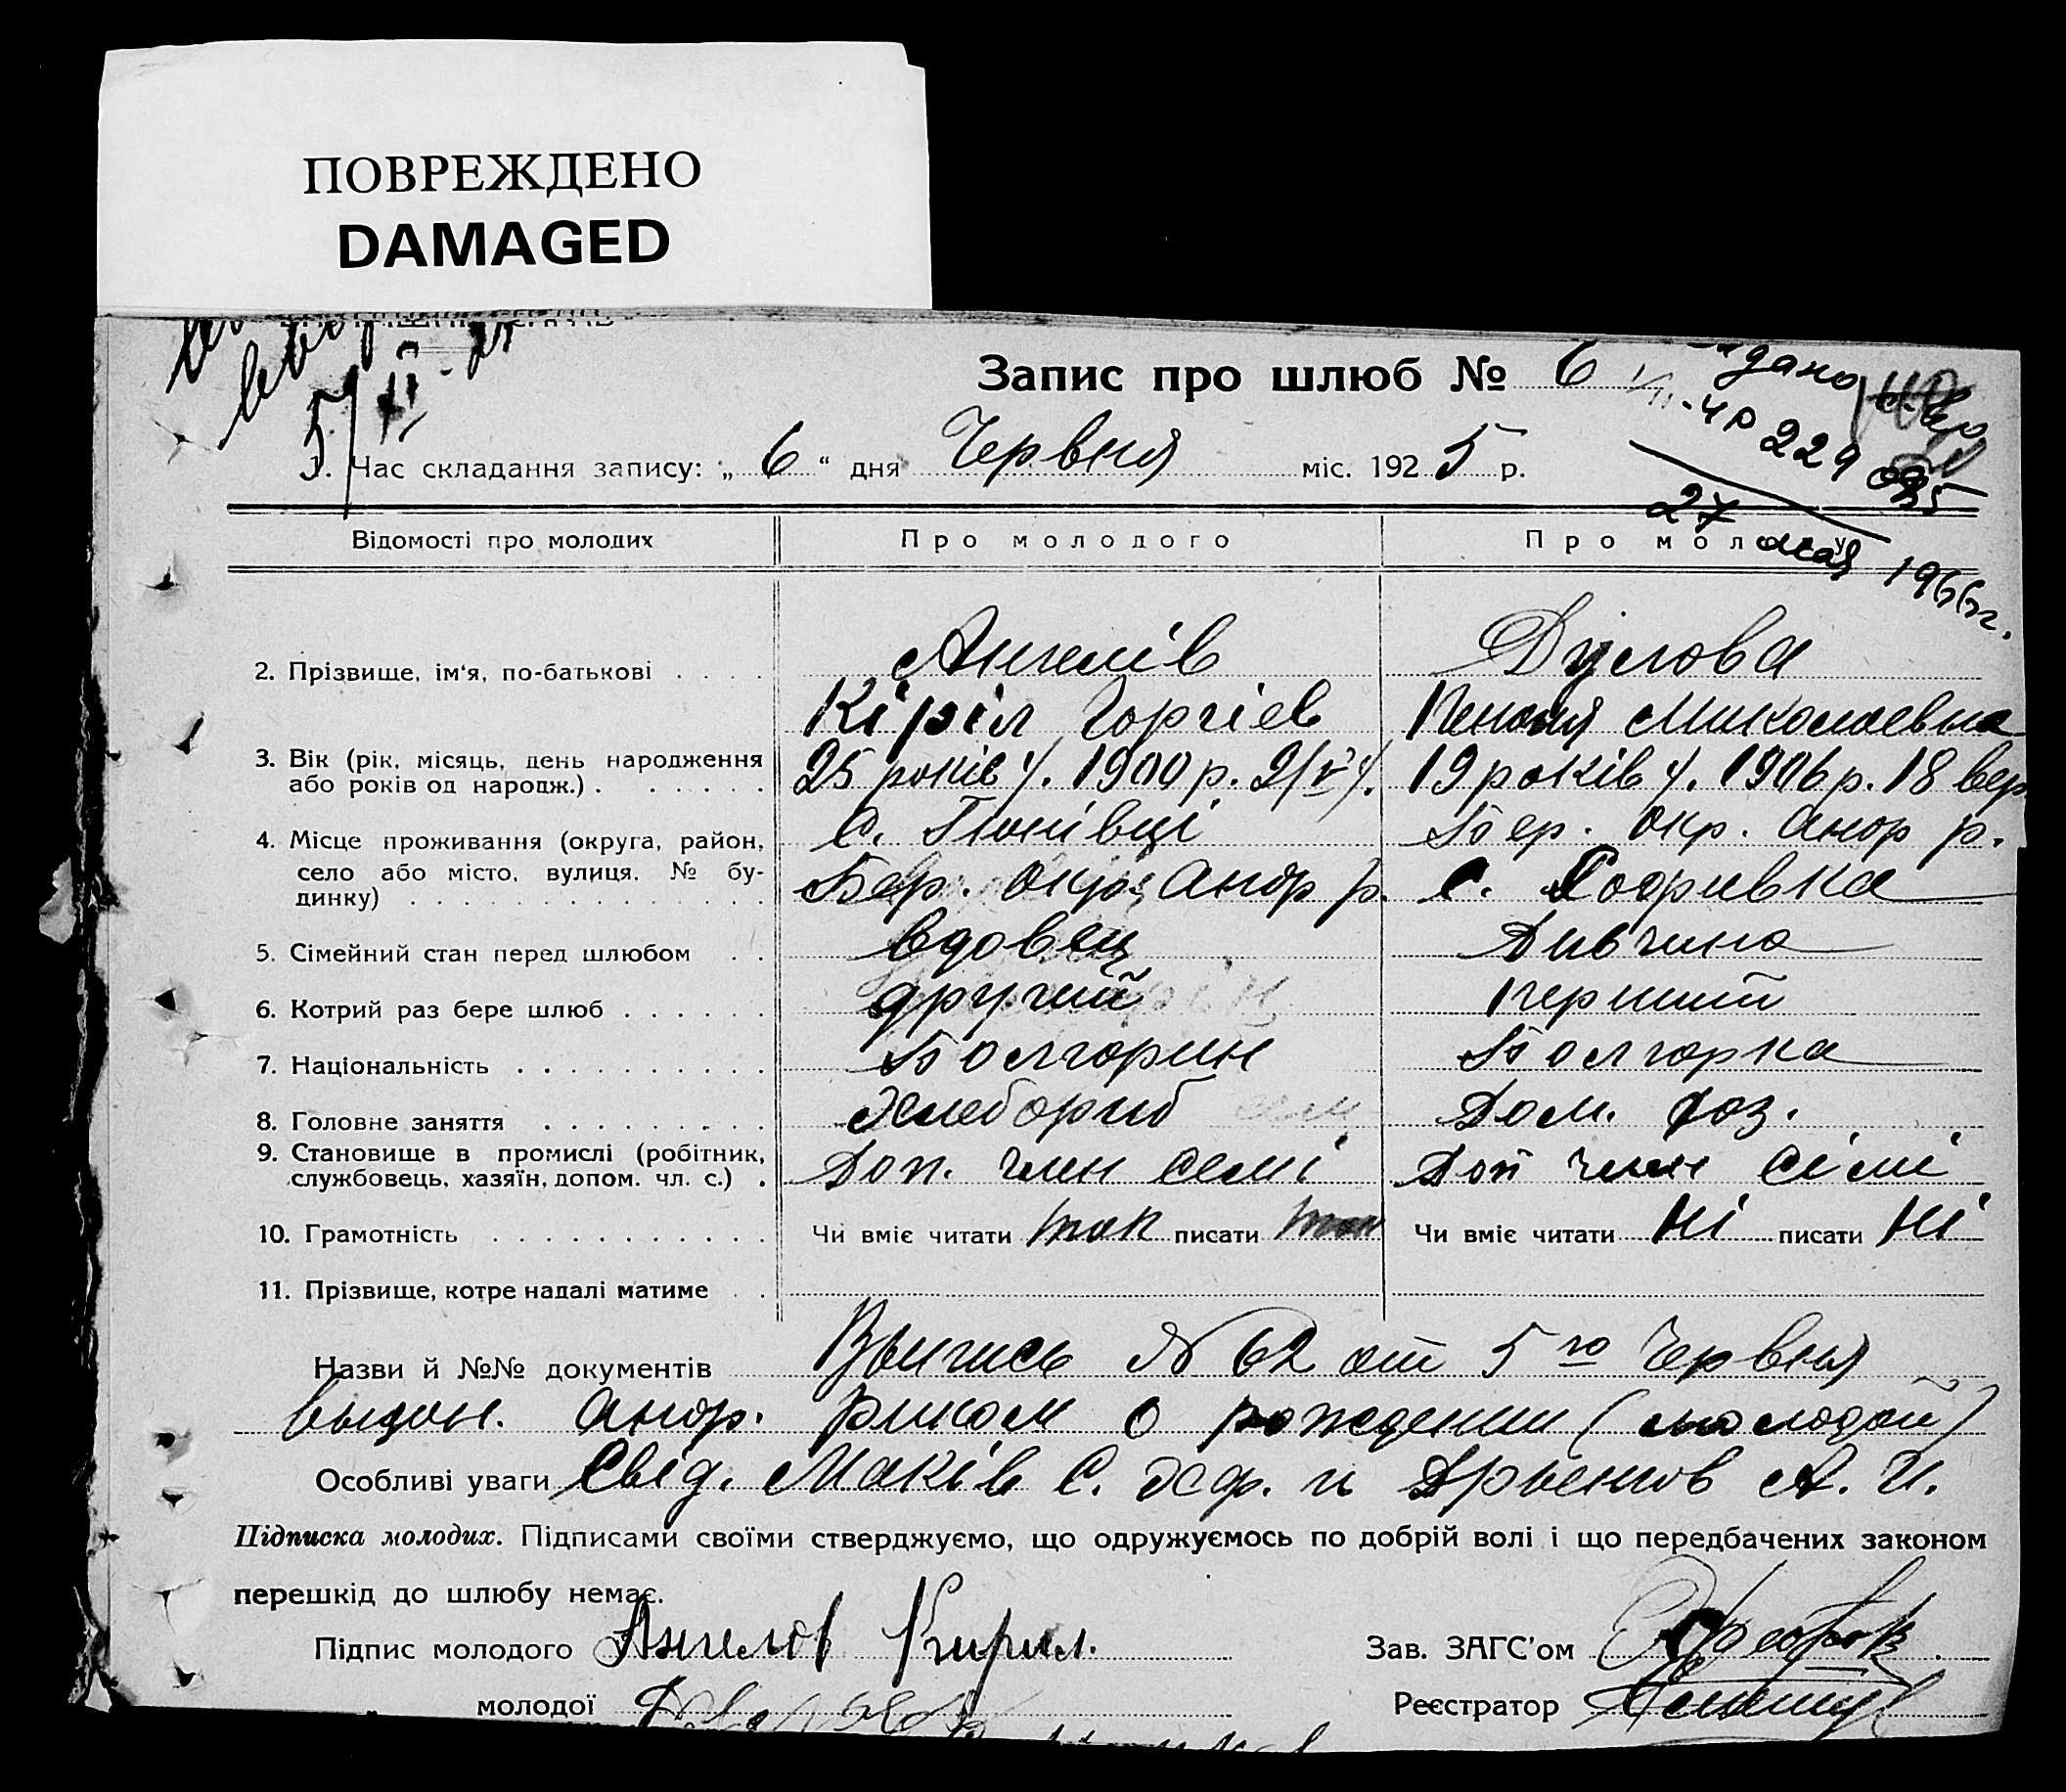 ПОВРЕЖДЕНО
DAMAGED
Запис про шлюб № 6
дано
229
27 мая 1966г.
1. Час складання запису: „ 6 “ дня Червня міс. 1925 р.
Відомості про молодих Про молодого Про молоду
2. Прізвище, ім'я, по-батькові . . . . Ангелів Дулова
Кіріл Горгіев Миколаевна
3. Вік (рік, місяць, день народження 25 років 1900 р. 19 років 1906 р. 18 вер
або років од народж.) . . . . . .
4. Місце проживання (округа, район, С. Бер. Окр. Андр р.
село або місто, вулиця, № бу- Бер. Окр. Андр р. с. Софривка
динку) . . . . . . . . . . . . . .
5. Сімейний стан перед шлюбом . . вдовец Дивчина
6. Котрий раз бере шлюб . . . . . . другий перший
7. Національність . . . . . . . . . . Болгорин Болгорка
8. Головне заняття . . . . . . . . . Хлебориб Дом. хоз.
9. Становище в промислі (робітник, Доп. член семі Доп член сімі
службовець, хазяїн, допом. чл. с.) .
10. Грамотність . . . . . . . . . . . Чи вміє читати так писати так Чи вміє читати Ні писати Ні
11. Прізвище, котре надалі матиме . .
Назви й №№ документів Выпись № 62 от 5го Червня
выдан. Андр. Риком о рождении (молодой)
Особливі уваги Свід. Маків С. Хф. и А. И.
Підписка молодих. Підписами своїми стверджуємо, що одружуємось по добрій волі і що передбачених законом
перешкід до шлюбу немає.
Підпис молодого Ангелов Кирил. Зав. ЗАГС'ом
молодої Реєстратор